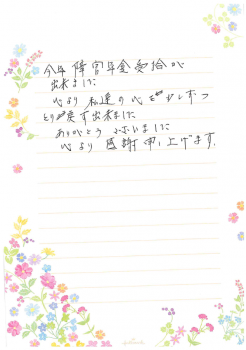 今年 障害年金受給が
出来ました
心より 私達の心を少しずつ
とり戻す出来ました
ありがとうございました
心より 感謝申し上げます。